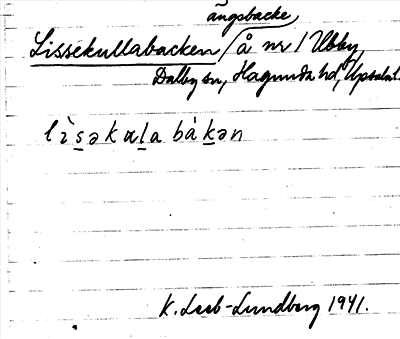 ängsbacke,
Lissekullabacken / å nr 1 Ubby,
Dalby sn, Hagunda hd, Upsala l.
lìs̲əkal̲a bàk̲ən
K. Leeb-Lundberg 1941.